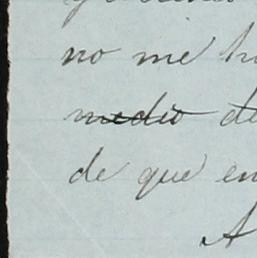 no me h
medio de
de que en
A